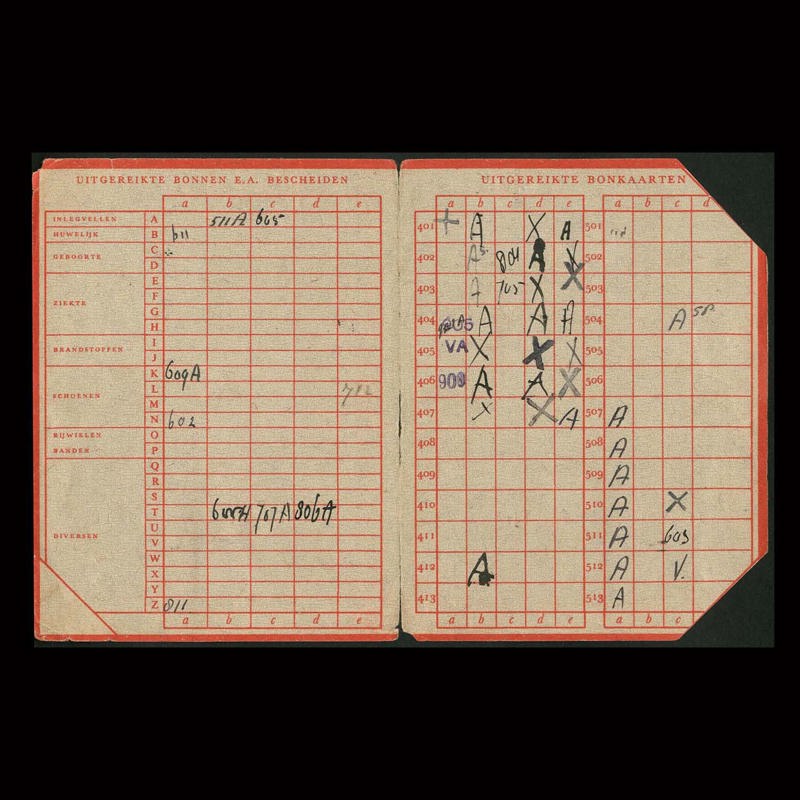 UITGEREIKTE BONNEN E.A. BESCHEIDEN
a b c d e
INLEGVELLEN A 511A 605
HUWELIJK B 611
GEBOORTE C
D
E
ZIEKTE F
G
H
I
BRANDSTOFFEN J
K 609A
SCHOENEN L 712
M
N 602
RIJWIELEN O
BANDEN P
Q
R
S
T 707A 806A
U
DIVERSEN V
V
W
X
Y
Z 811
a b c d e
UITGEREIKTE BONKAARTEN
a b c d e a b c d
401 + A X A 501
402 A 804 A X 502
403 A 705 X X 503
404 A A A 504 A
405 VA X X X 505
406 909 A A X 506
407 X X A 507 A
408 508 A
409 509 A
410 510 A X
411 511 A 603
412 A 512 A V.
413 513 A
a b c d e a b c